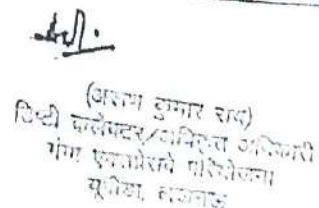 (अरुण कुमार राय)
डिप्टी कलेक्टर/प्राधिकृत अधिकारी
गंगा एक्सप्रेसवे परियोजना
यूपीडा, लखनऊ